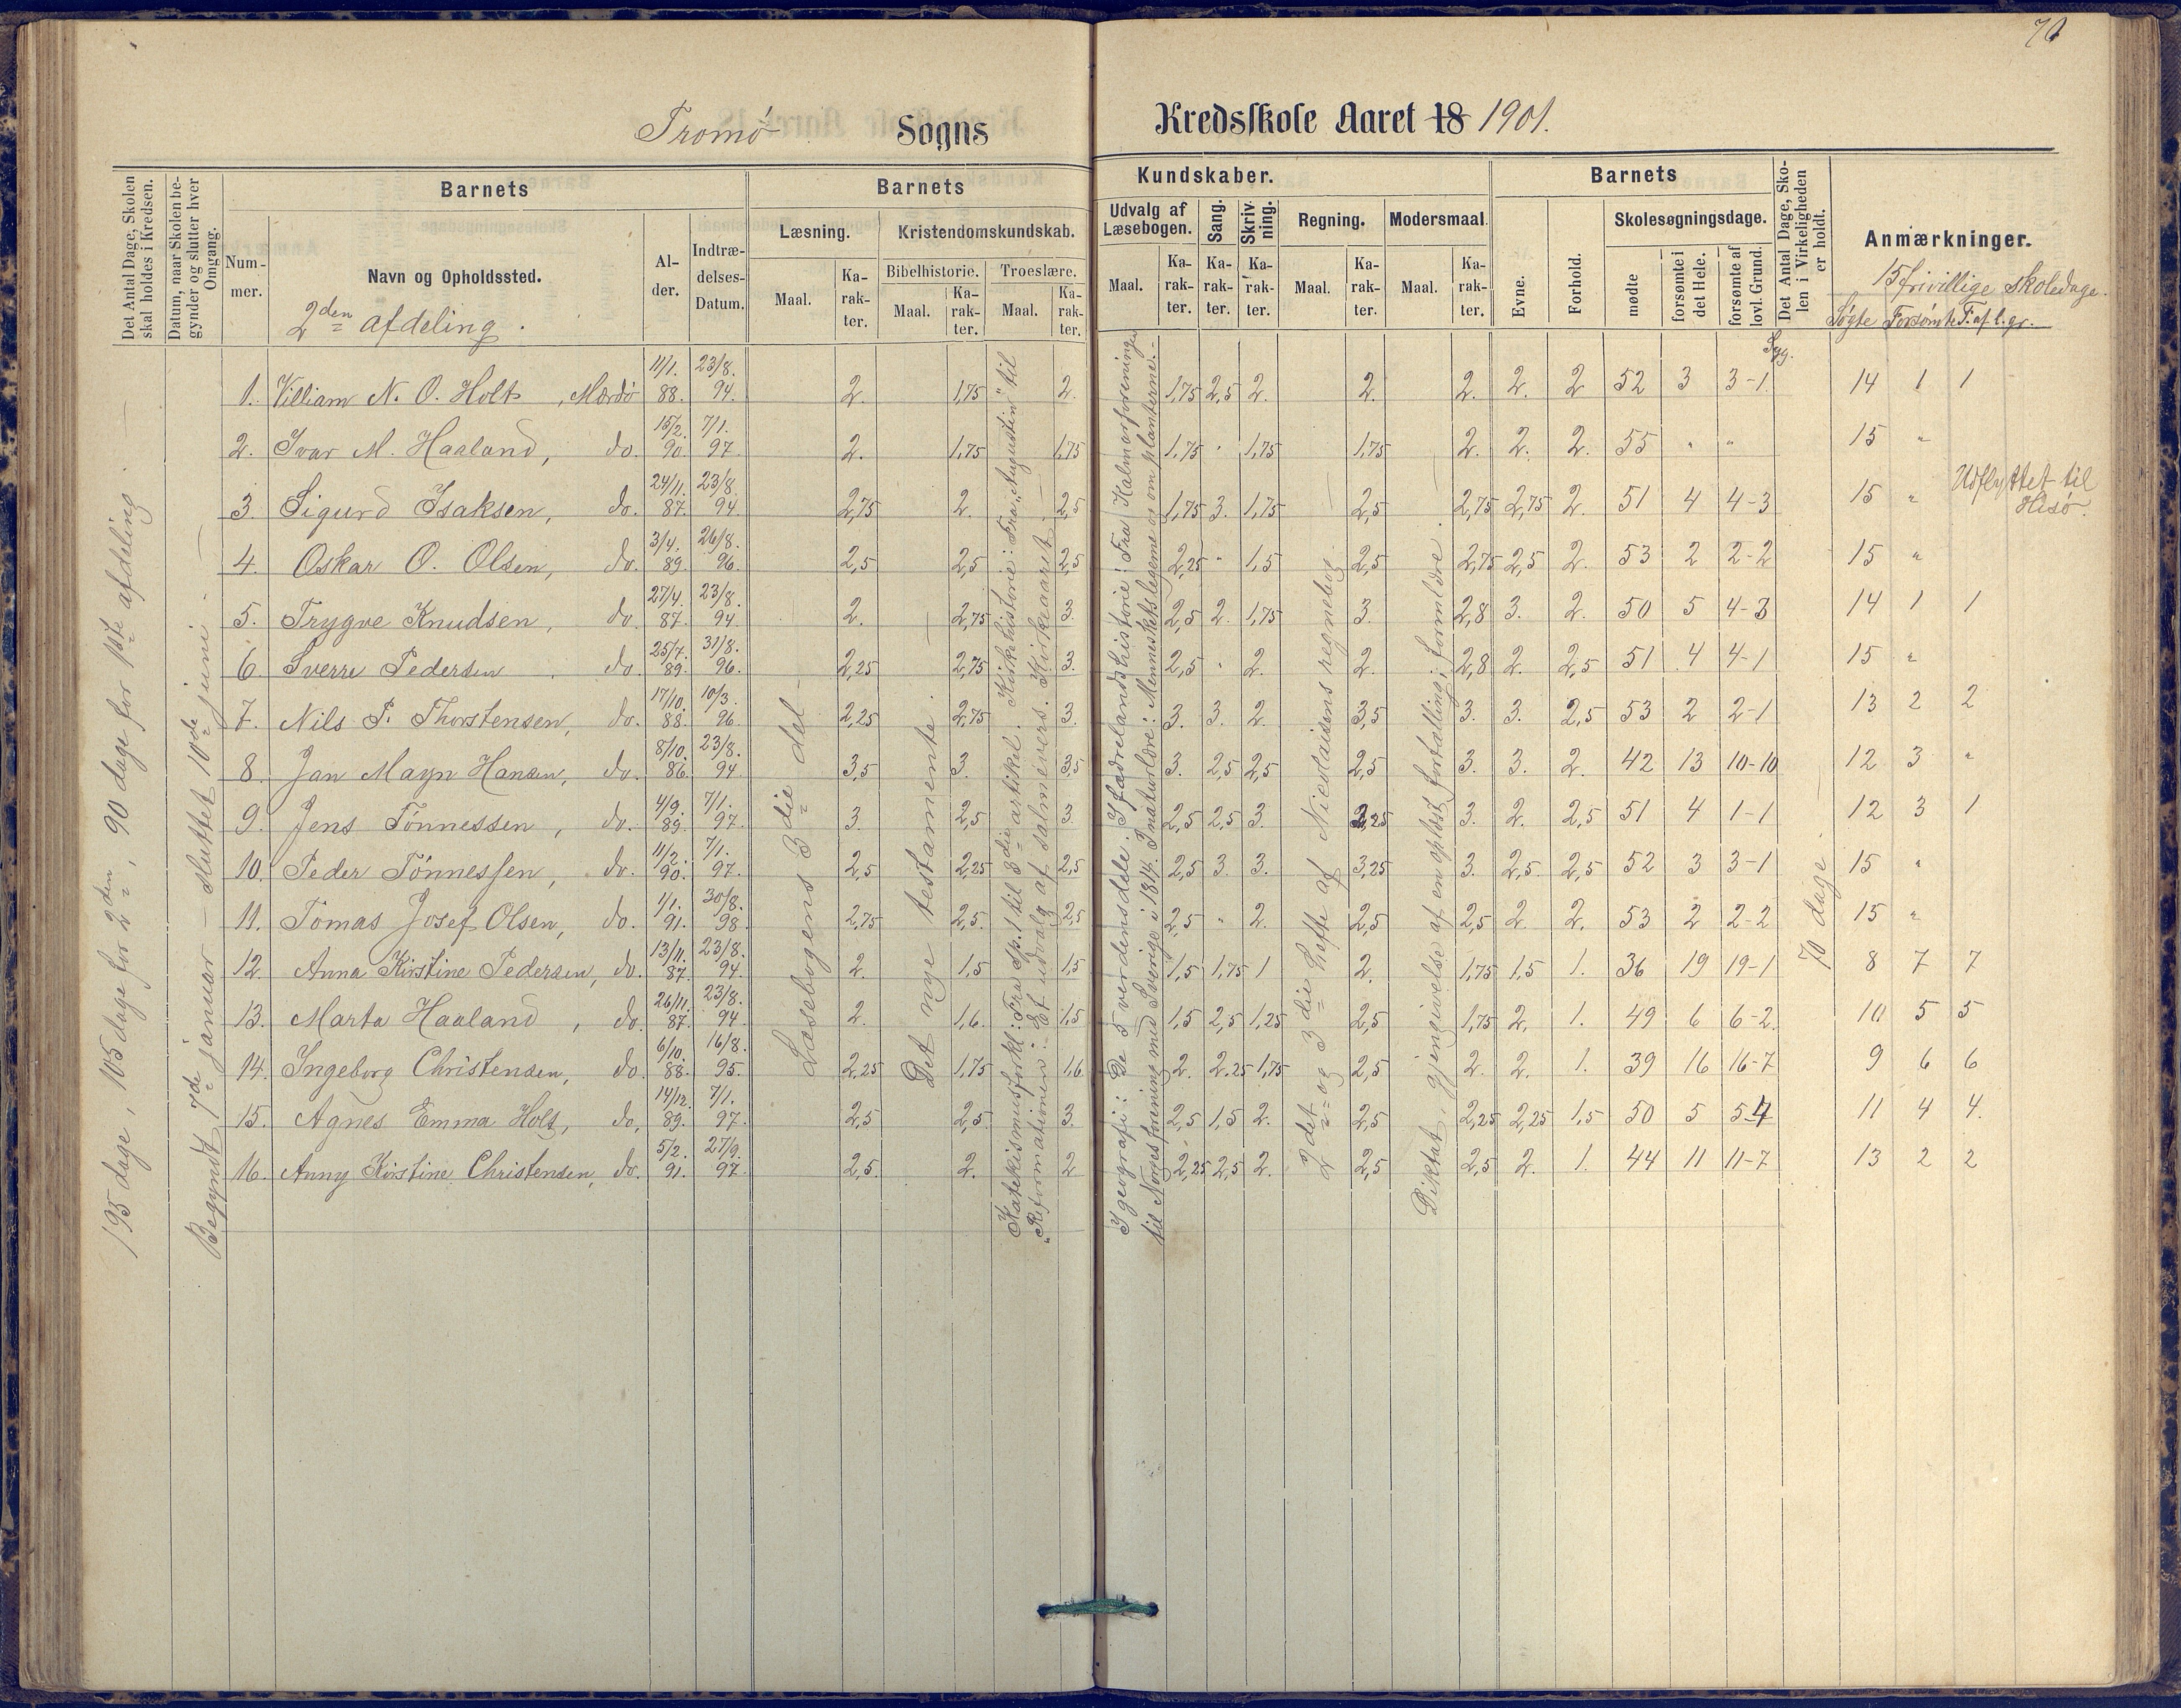 70
Tromø Sogns Kredsskole Aaret 18 1901.
Det Antal Dage, Skolen skal holdes i Kredsen.
Datum, naar Skolen begynder og slutter hver Omgang.
Barnets
Nummer.
Navn og Opholdssted.
2den afdeling.
Alder.
Indtrædelses-Datum.
Barnets Kundskaber.
Læsning.
Maal.
Karakter.
Kristendomskundskab.
Bibelhistorie.
Maal.
Karakter.
Troeslære.
Maal.
Karakter.
Udvalg af Læsebogen.
Maal.
Karakter.
Sang.
Karakter.
Skrivning.
Karakter.
Regning.
Maal.
Karakter.
Modersmaal.
Maal.
Karakter.
Barnets
Evne.
Forhold.
Skolesøgningsdage.
mødte
forsømte i det Hele.
forsømte af lovl. Grund.
Syg.
Det Antal Dage, Skolen i Virkeligheden er holdt.
Anmærkninger.
15 frivillige skoledage.
Søgte Forsømte F. af l. gr.
195 dage, 105 dage for 2den, 90 dage for 1ste afdeling.
Begyndt 7de januar – sluttet 10de juni.
Læsebogens 3die del
Det nye testamente.
Katekismusforkl: Fra Sp. 1 til 3die artikel. Kirkehistorie: Fra "Augustin" til
"Reformationen". Et udvalg af salmevers. Kirkeaaret.
I geografi: De 5 verdensdele. I fædrelandshistorie: Fra Kalmarforeningen
til Norges forening med Sverige i 1814. I naturlære: Menneskelegeme og om planterne.
2det og 3die hefte af Nicolaisens regnebog.
Diktat, gjengivelse af en oplæst fortælling; formlære.
70 dage
1. Villiam N. O. Holt, Mærdø 11/1. 88. 23/8. 94. 2. 1,75 2. 1,75 2,5 2. 2. 2. 2. 2 52 3 3-1. 14 1 1
2. Ivar M. Haaland, do. 15/2. 90. 7/1. 97. 2. 1,75 1,75 1,75 " 1,75 1,75 2. 2. 2. 55 " " 15 "
3. Sigurd Isaksen, do. 24/11. 87. 23/8. 94. 2,75 2. 2,5 1,75 3. 1,75 2,5 2,75 2,75 2. 51 4 4-3 15 " Udflyttet til Hisø.
4. Oskar O. Olsen, do. 3/4. 89. 26/8. 96. 2,5 2,5 2,5 2,25 " 1,5 2,5 2,75 2,5 2. 53 2 2-2 15 "
5. Trygve Knudsen, do. 27/4. 87. 23/8. 94. 2. 2,75 3. 2,5 2. 1,75 3. 2,8 3. 2. 50 5 4-3 14 1 1
6. Sverre Pedersen do. 25/7. 89. 31/8. 96. 2,25 2,75 3. 2,5 " 2. 2. 2,8 2. 2,5 51 4 4-1 15 "
7. Nils P. Thorstensen, do. 17/10. 88. 10/3. 96. 2,25 2,75 3. 3. 3. 2. 3,5 3. 3. 2,5 53 2 2-1 13 2 2
8. Jan Mayn Hansen, do. 8/10. 86. 23/8. 94. 3,5 3. 3,5 3. 2,5 2,5 2,5 3. 3. 2. 42 13 10-10 12 3 "
9. Jens Tønnessen, do. 4/9. 89. 7/1. 97. 3. 2,5 3. 2,5 2,5 3. 2,25 3. 2. 2,5 51 4 1-1 12 3 1
10. Peder Tønnessen, do. 11/2. 90. 7/1. 97. 2,5 2,25 2,5 2,5 3. 3. 3,25 3. 2,5. 2,5 52 3 3-1 15 "
11. Tomas Josef Olsen, do. 1/1. 91. 30/8. 98 2,75 2,5. 2,5 2,5 " 2. 2,5 2,5 2 2. 53 2 2-2 15 "
12. Anna Kirstine Pedersen, do. 13/11. 87. 23/8. 94. 2. 1,5 1,5 1,5 1,75 1 2. 1,75 1,5 1. 36 19 19-1 8 7 7
13. Marta Haaland, do. 26/11. 87. 23/8. 94. 2. 1,6. 1,5 1,5 2,5 1,25 2,5 1,75 2. 1. 49 6 6-2. 10 5 5
14. Ingeborg Christensen, do. 6/10. 88. 16/8. 95. 2,25 1,75 1,6. 2. 2,25 1,75 2,5 2. 2. 1. 39 16 16-7 9 6 6
15. Agnes Emma Holt, do. 14/12. 89. 7/1. 97. 2,5 2,5 3. 2,5 1,5 2. 2,5 2,25 2,25 1,5 50 5 5-4 11 4 4.
16. Anny Kirstine Christensen, do. 5/2. 91. 27/9. 97. 2,5. 2. 2 2,25 2,5 2. 2,5 2,5 2. 1. 44 11 11-7 13 2 2